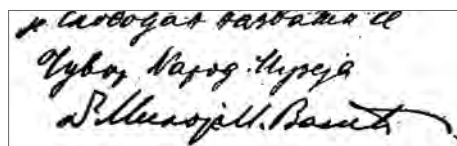 и слободанназвати се
Чувар Народ. Музеја
Dr Милоје М. Васић